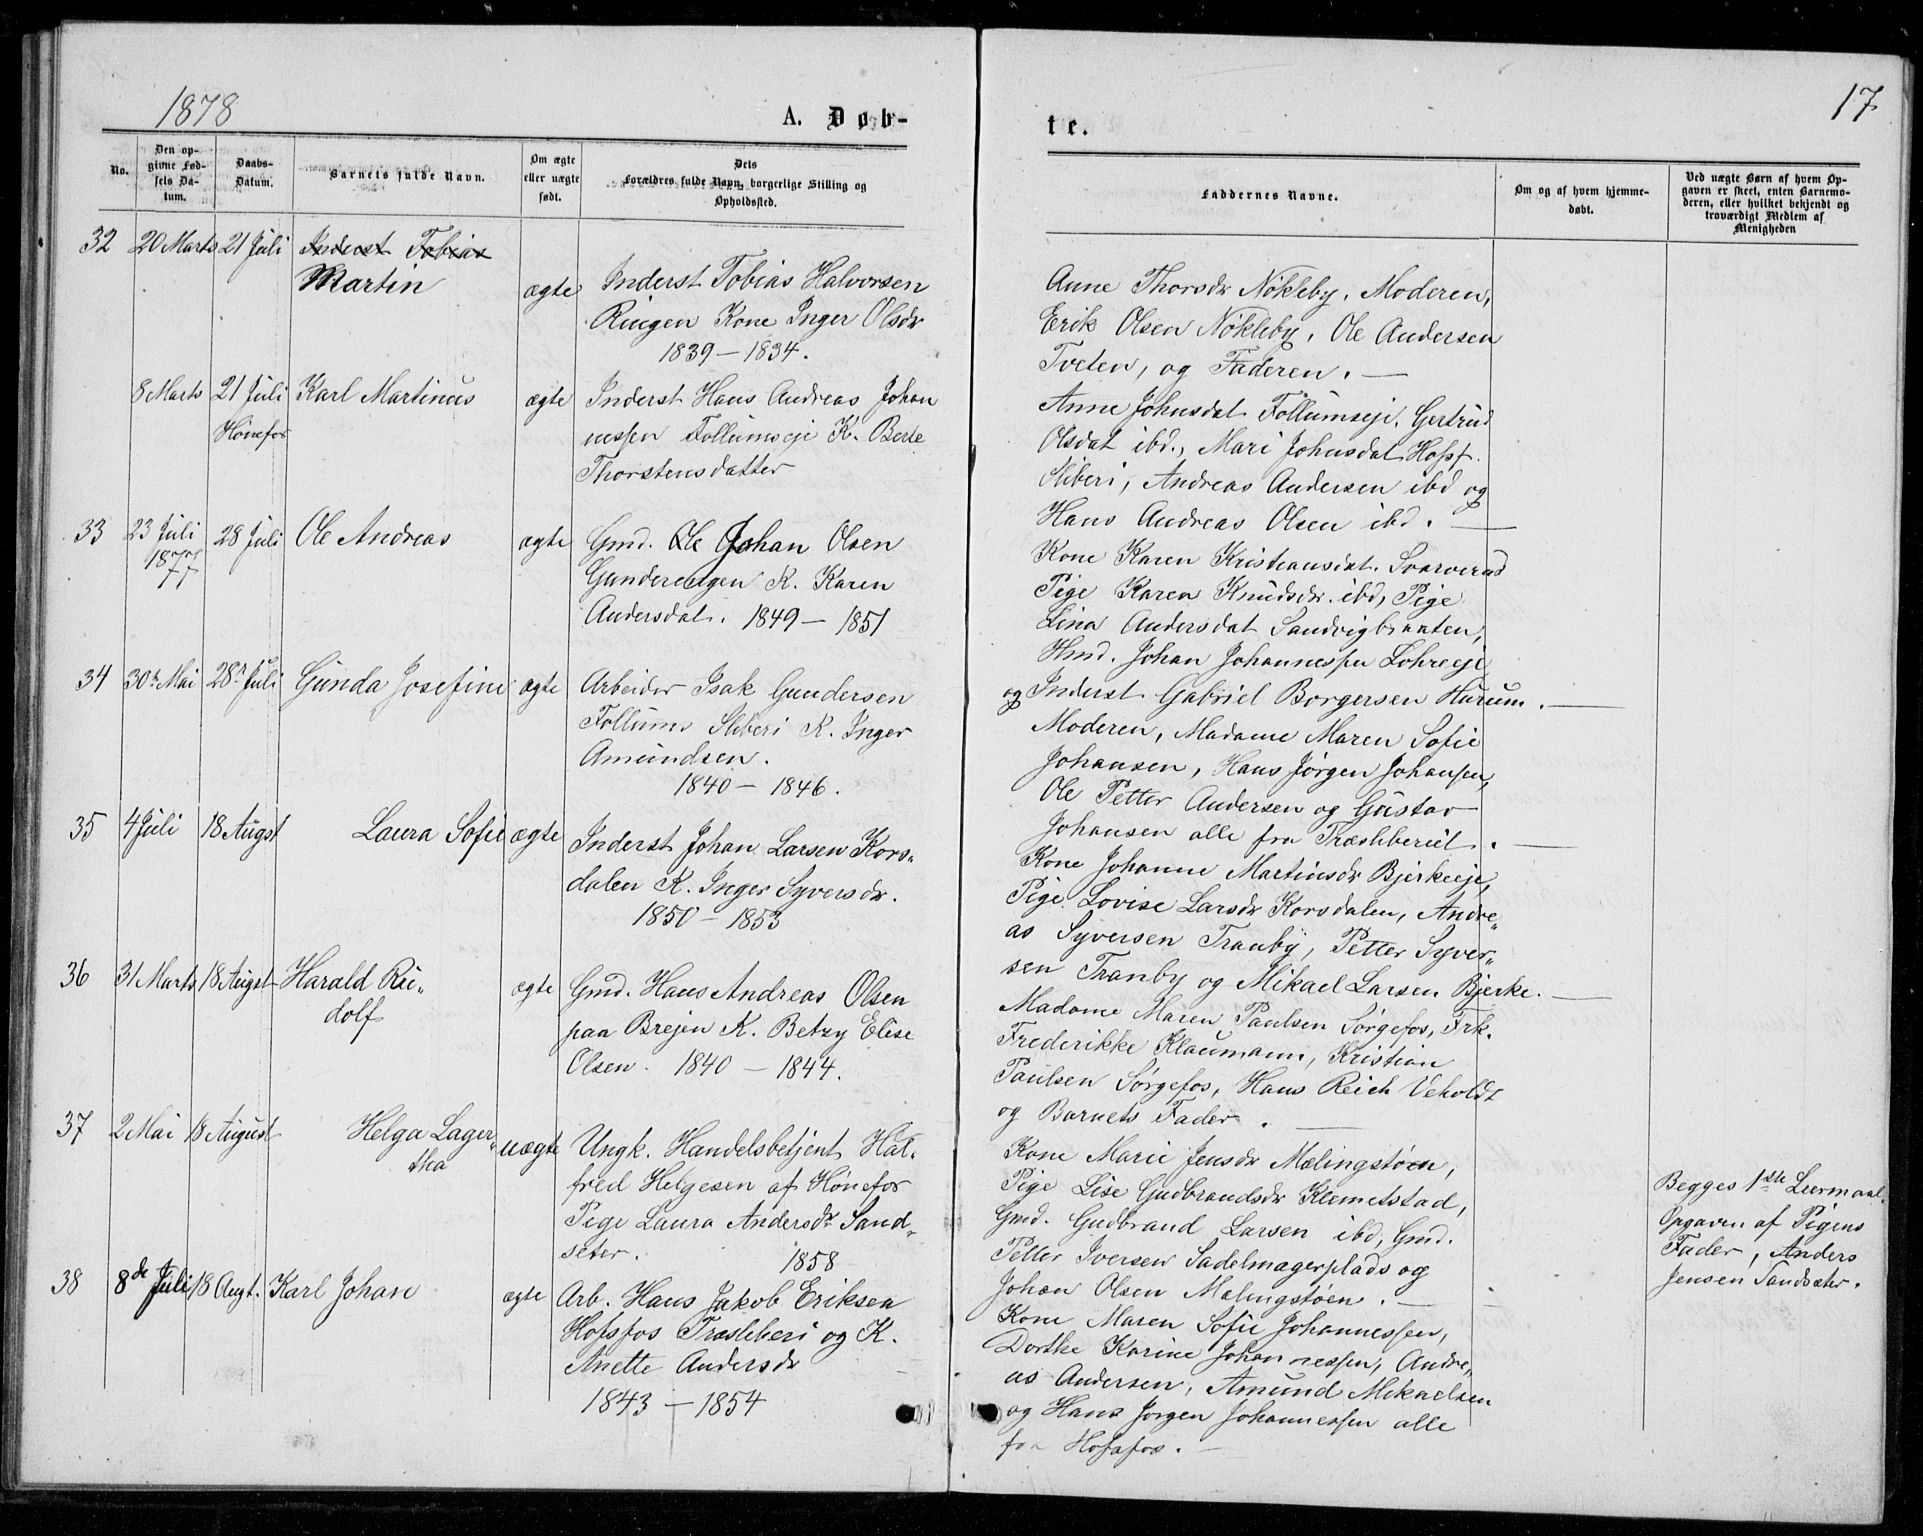 1878
A. Døb-
te.
17
No.
Den op-
givne Fød-
sels Da-
tum.
Daabs-
Datum.
Barnets fulde Navn.
Om ægte
eller uægte
født.
Dets
Forældres fulde Navn, borgerlige Stilling og
Opholdssted.
Faddernes Navne.
Om og af hvem hjemme-
døbt.
Ved uægte Børn af hvem Op-
gaven er skeet, enten Barnemo-
deren, eller hvilket bekjendt og
troværdigt Medlem af
Menigheden
32 20 Marts 21 Juli Inderst Tobias
Martin
ægte Inderst Tobias Halvorsen
Ringen Kone Inger Olsdr
1839 - 1834.
Anne Thorsdr Nökleby, Moderen,
Erik Olsen Nökleby, Ole Andersen
Tveten, og Faderen. —
8 Marts 21 Juli Karl Martinus ægte Inderst Hans Andreas Johan
Hönefos nessen Follumseje K. Berte
Thorstensdatter
Anne Johnsdat Follumseje, Gertrud
Olsdat ibd., Mari Johnsdat Hofsf.
Sliberi, Andreas Andersen ibd og
Hans Andreas Olsen ibd. —
33 23 Juli 28 Juli Ole Andreas ægte Gmd. Ole Johan Olsen
1877 Gunderengen K. Karen
Andersdat. 1849 — 1851
Kone Karen Kristiansdat. Svarverud
Pige Karen Knudsdr. ibd, Pige
Lina Andersdat Sandvigbraaten,
Hmd. Johan Johannessen Lohreeje
og Inderst Gabriel Borgersen Hurum. —
34 30te Mai 28de Juli Gunda Josefine ægte Arbeider Isak Gundersen
Follums Sliberi K. Inger
Amundsen.
1840 — 1846.
Moderen, Madame Maren Sofie
Johansen, Hans Jörgen Johansen,
Ole Petter Andersen og Gustav
Johansen alle fra Træsliberiet. —
35 4 Juli 18 Augst Laura Sofie ægte Inderst Johan Larsen Kors-
dalen K. Inger Syversdr.
1850 - 1853
Kone Johanne Martinsdr Bjerkeeje,
Pige Lovise Larsdr Korsdalen, Andre-
as Syversen Tranby, Petter Syver-
sen Tranby og Mikael Larsen Bjerke. —
36 31 Marts 18 Augst Harald Ru-
dolf
ægte Gmd. Hans Andreas Olsen
paa Brejen K. Betzy Elise
Olsen. 1840 — 1844.
Madame Maren Paulsen Sörgefos, Frk.
Frederikke Klaumann, Kristian
Paulsen Sörgefos, Hans Reich Veholdt
og Barnets Fader. —
37 2 Mai 18 August Helga Lager-
tha
uægte Ungk. Handelsbetjent Hal-
fred Helgesen af Hönefos
Pige Laura Andersdr Sand-
seter. 1858
Kone Marie Jensdr Mælingstöen,
Pige Lise Gudbrandsdr Klemetstad,
Gmd. Gudbrand Larsen ibd, Gmd.
Petter Iversen Sadelmagerplads og
Johan Olsen Mælingstöen. —
Begges 1ste Leiermaal.
Opgaven af Pigens
Fader, Anders
Jensen Sandsæter.
38 8de Juli 18 Augt. Karl Johan ægte Arb. Hans Jakob Eriksen
Hofsfos Træsliberi og K.
Anette Andersdr
1843 — 1854
Kone Maren Sofie Johannessen,
Dorthe Karine Johannessen, Andre-
as Andersen, Amund Mikaelsen
og Hans Jörgen Johannessen alle
fra Hofsfos. —